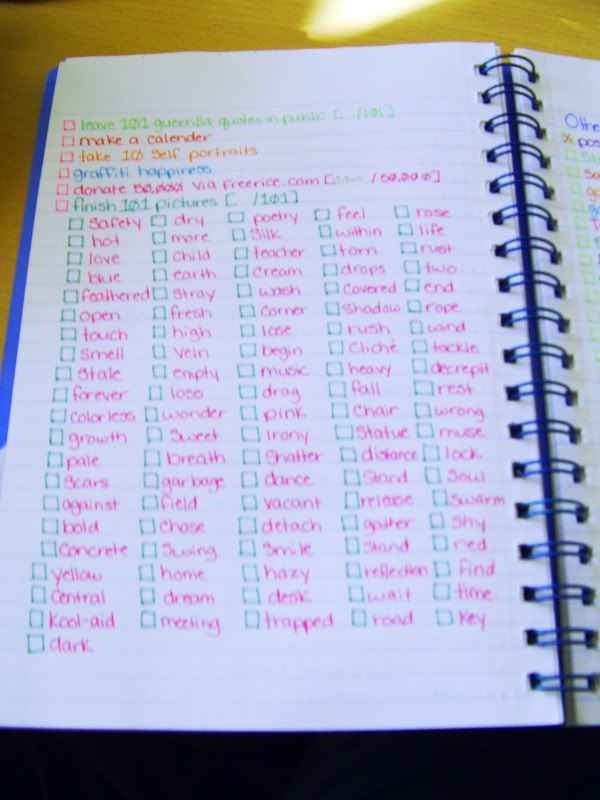 leave 101 guerrilla quotes in public [ /101]
make a calender
take 10 self portraits
graffiti happiness
donate 50,000 via Freerice.com [ /50,000]
finish 101 pictures [ /101]
Safety dry poetry feel rose
hot more Silk within life
love child teacher torn rust
blue earth cream drops two
feathered stray wash covered end
open fresh corner Shadow rope
touch high lose rush wind
Smell vein begin Cliché tackle
Stale empty music heavy decrepit
forever loss drag fall rest
colorless wonder pink Chair wrong
growth Sweet irony Statue muse
pale breath Shatter distance lock
Scars garbage dance Stand Soul
against field vacant release swarm
bold chase detach gather shy
Concrete Swing Smile Stand red
yellow home hazy reflection find
Central dream desk wait time
Kool-aid meeting trapped road Key
dark
Othe
pos